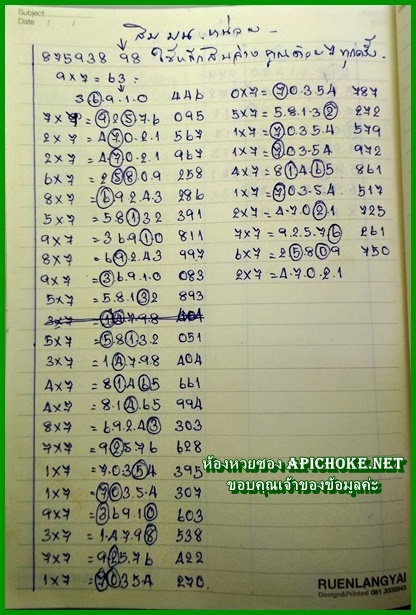 Subject
Date / /
สิบ บน หน่วย
875938 98 ใช้หลักสิบล่าง คูณด้วย 7 ทุกครั้ง
9×7 = 63
3 6.9.1.0 446
7×7 = 92576 095
2×7 = 470.2.1 567
2×7 = 470.2.1 967
6×7 = 25809 258
8×7 = 69243 286
5×7 = 58132 391
9×7 = 36910 811
8×7 = 69243 997
9×7 = 369.1.0 083
5×7 = 5.8.132 893
3×7 = 147.98 404
5×7 = 58132 051
3×7 = 14798 404
4×7 = 81465 661
4×7 = 8.1465 994
8×7 = 69243 303
7×7 = 92576 628
1×7 = 70354 395
1×7 = 70354 307
9×7 = 36910 603
3×7 = 1.4.7.98 538
7×7 = 92576 422
1×7 = 70354 270
0×7 = 70354 787
5×7 = 5.8.1.32 272
1×7 = 70354 579
1×7 = 70354 972
4×7 = 81465 861
1×7 = 703.54 517
2×7 = 4.7.021 725
7×7 = 92576 261
6×7 = 25809 750
2×7 = 4.7.0.2.1
ห้องหวยซอง APICHOKE.NET
ขอบคุณเจ้าของข้อมูลค่ะ
RUENLANGYAI